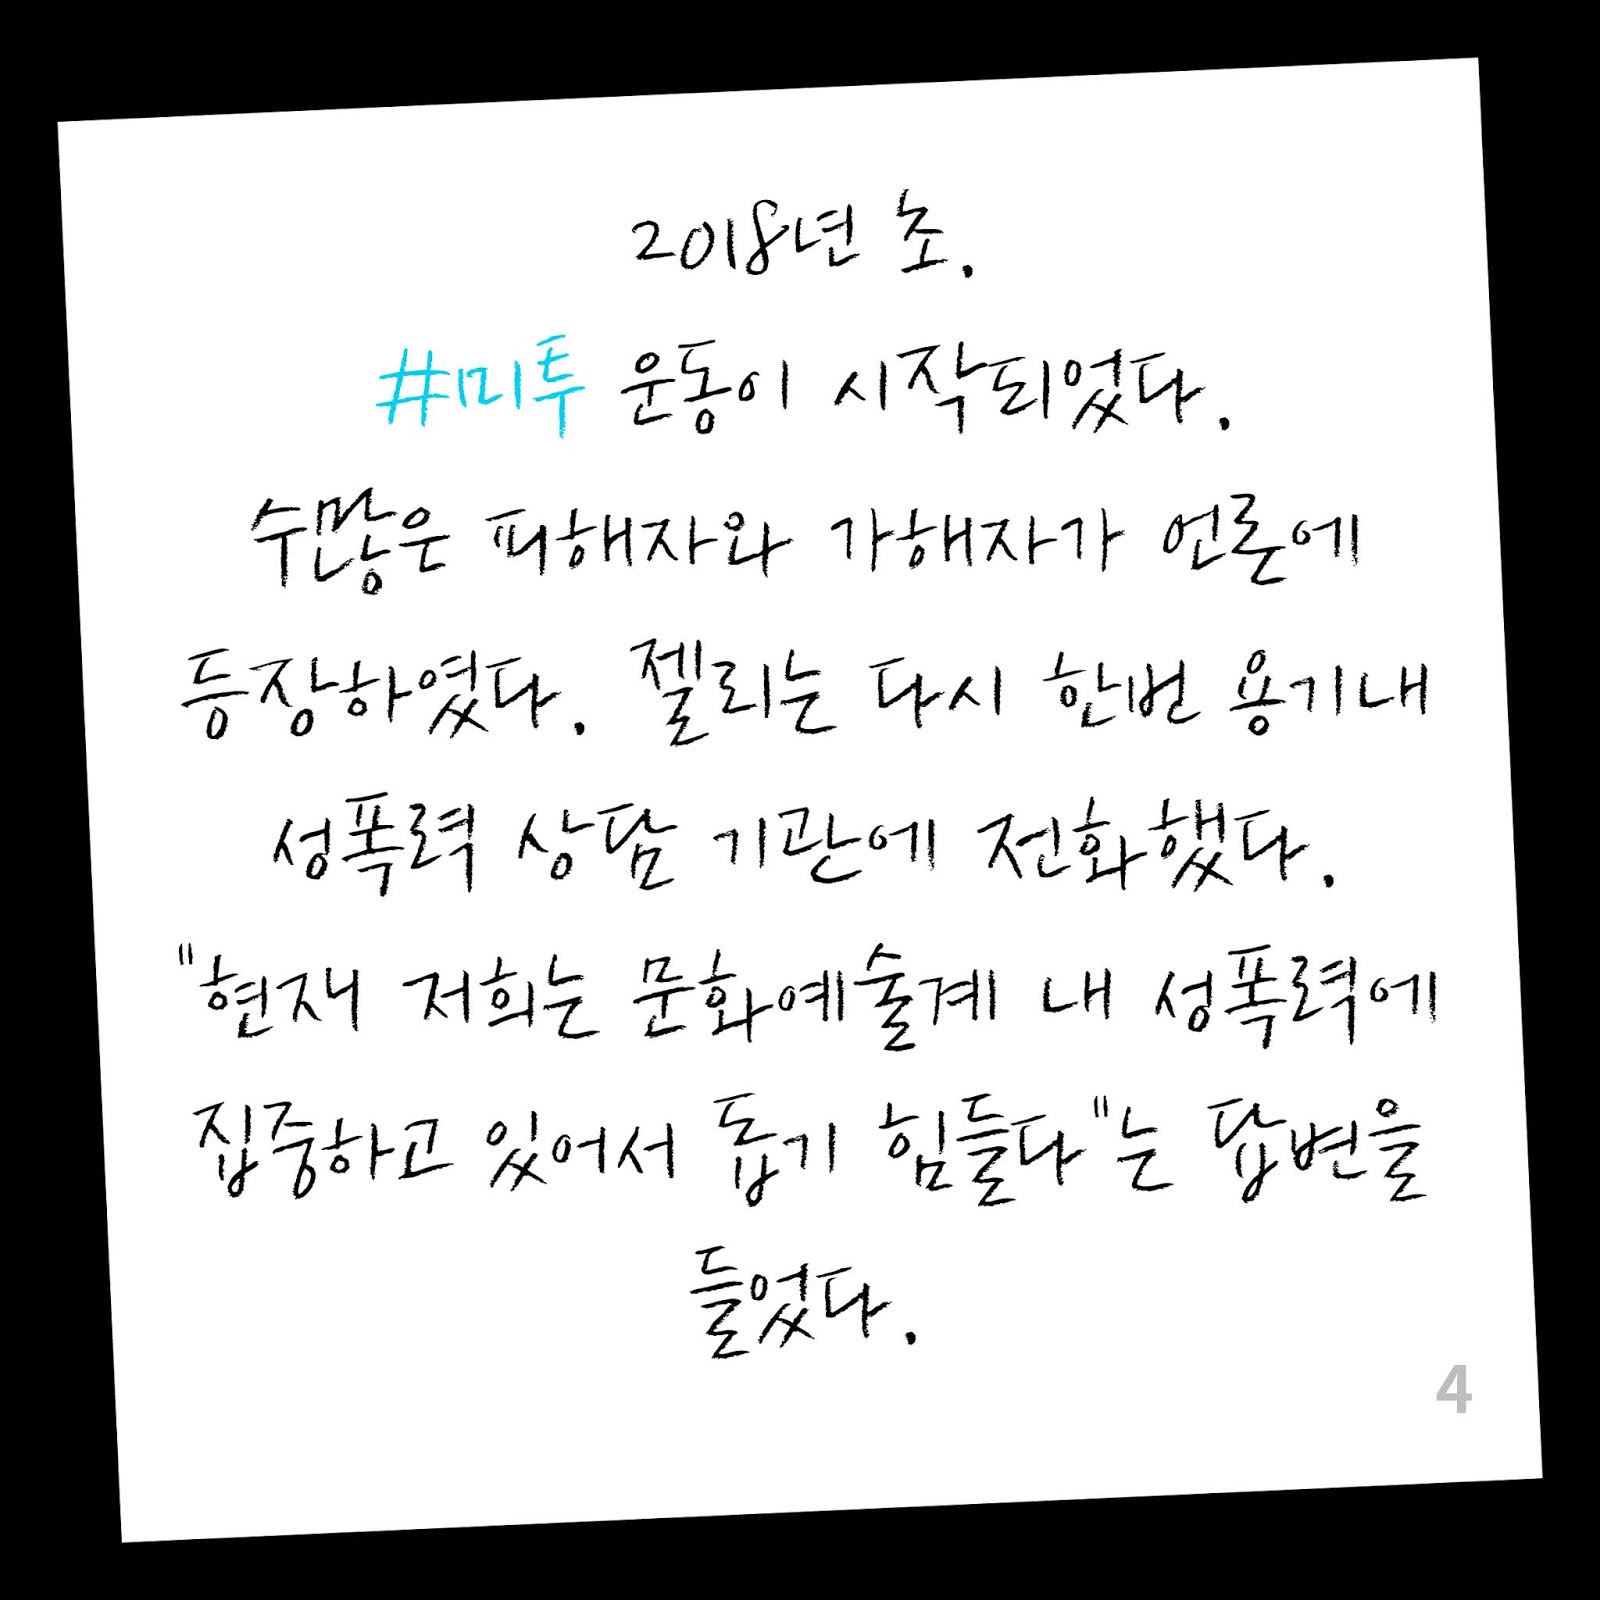 2018년 초.
#미투 운동이 시작되었다.
수많은 피해자와 가해자가 언론에
등장하였다. 젤리는 다시 한번 용기내
성폭력 상담 기관에 전화했다.
"현재 저희는 문화예술계 내 성폭력에
집중하고 있어서 돕기 힘들다"는 답변을
들었다.
4